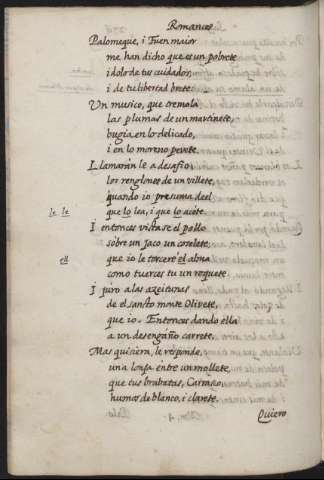 Romances
Palomeque, i Fuen maior
me han dicho que es un pobrete
idolo de tus cuidados,
i de tu libertad brete
Un musico, que tremola
las plumas de un martinete,
bugia en lo delicado,
i en lo moreno pevete.
Llamaràn le a desafio
los renglones de un villete,
quando io presuma del
le le que lo lea, i que lo acete.
I entonces vistase el pollo
sobre un Jaco un coselete,
ell que io le torcerè el alma
como tuerces tu un roquete
I juro a las azeitunas
de el sancto monte Olivete,
que io. Entonces dando ella
a un desengaño carrete.
Mas quisiera, le responde,
una lonja entre un mollete,
que tus brabatas, Carrasco,
humos de blanco, i clarete.
Quiero